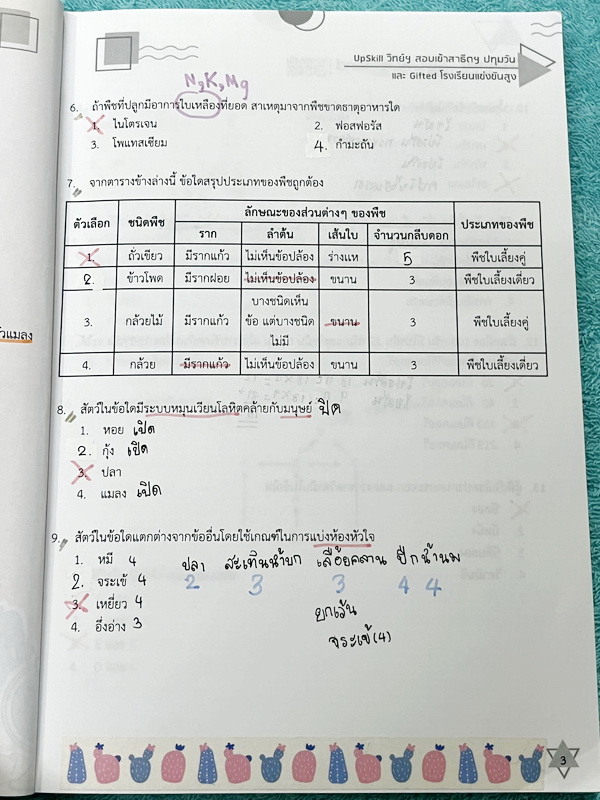 UpSkill วิทย์ฯ สอบเข้าสาธิตฯ ปทุมวัน
และ Gifted โรงเรียนแข่งขันสูง
N,K,Mg
6. ถ้าพืชที่ปลูกมีอาการใบเหลืองที่ยอด สาเหตุมาจากพืชขาดธาตุอาหารใด
1. ไนโตรเจน 2. ฟอสฟอรัส
3. โพแทสเซียม 4. กำมะถัน
7. จากตารางข้างล่างนี้ ข้อใดสรุปประเภทของพืชถูกต้อง
ตัวเลือก ชนิดพืช ลักษณะของส่วนต่างๆ ของพืช ประเภทของพืช
ราก ลำต้น เส้นใบ จำนวนกลีบดอก
1. ถั่วเขียว มีรากแก้ว ไม่เห็นข้อปล้อง ร่างแห 5 พืชใบเลี้ยงคู่
2. ข้าวโพด มีรากฝอย ไม่เห็นข้อปล้อง ขนาน 3 พืชใบเลี้ยงเดี่ยว
3. กล้วยไม้ มีรากแก้ว บางชนิดเห็น
ข้อ แต่บางชนิด
ไม่มี ขนาน 3 พืชใบเลี้ยงคู่
4. กล้วย มีรากแก้ว ไม่เห็นข้อปล้อง ขนาน 3 พืชใบเลี้ยงเดี่ยว
8. สัตว์ในข้อใดมีระบบหมุนเวียนโลหิตคล้ายกับมนุษย์ ปิด
1. หอย เปิด
2. กุ้ง เปิด
3. ปลา
4. แมลง เปิด
9. สัตว์ในข้อใดแตกต่างจากข้ออื่นโดยใช้เกณฑ์ในการแบ่งห้องหัวใจ
1. หมี 4 ปลา สะเทินน้ำบก เลื้อยคลาน ปีก น้ำนม
2. จระเข้ 4 2 3 3 4 4
3. เหยี่ยว 4 ยกเว้น
4. อึ่งอ่าง 3 จระเข้(4)
3